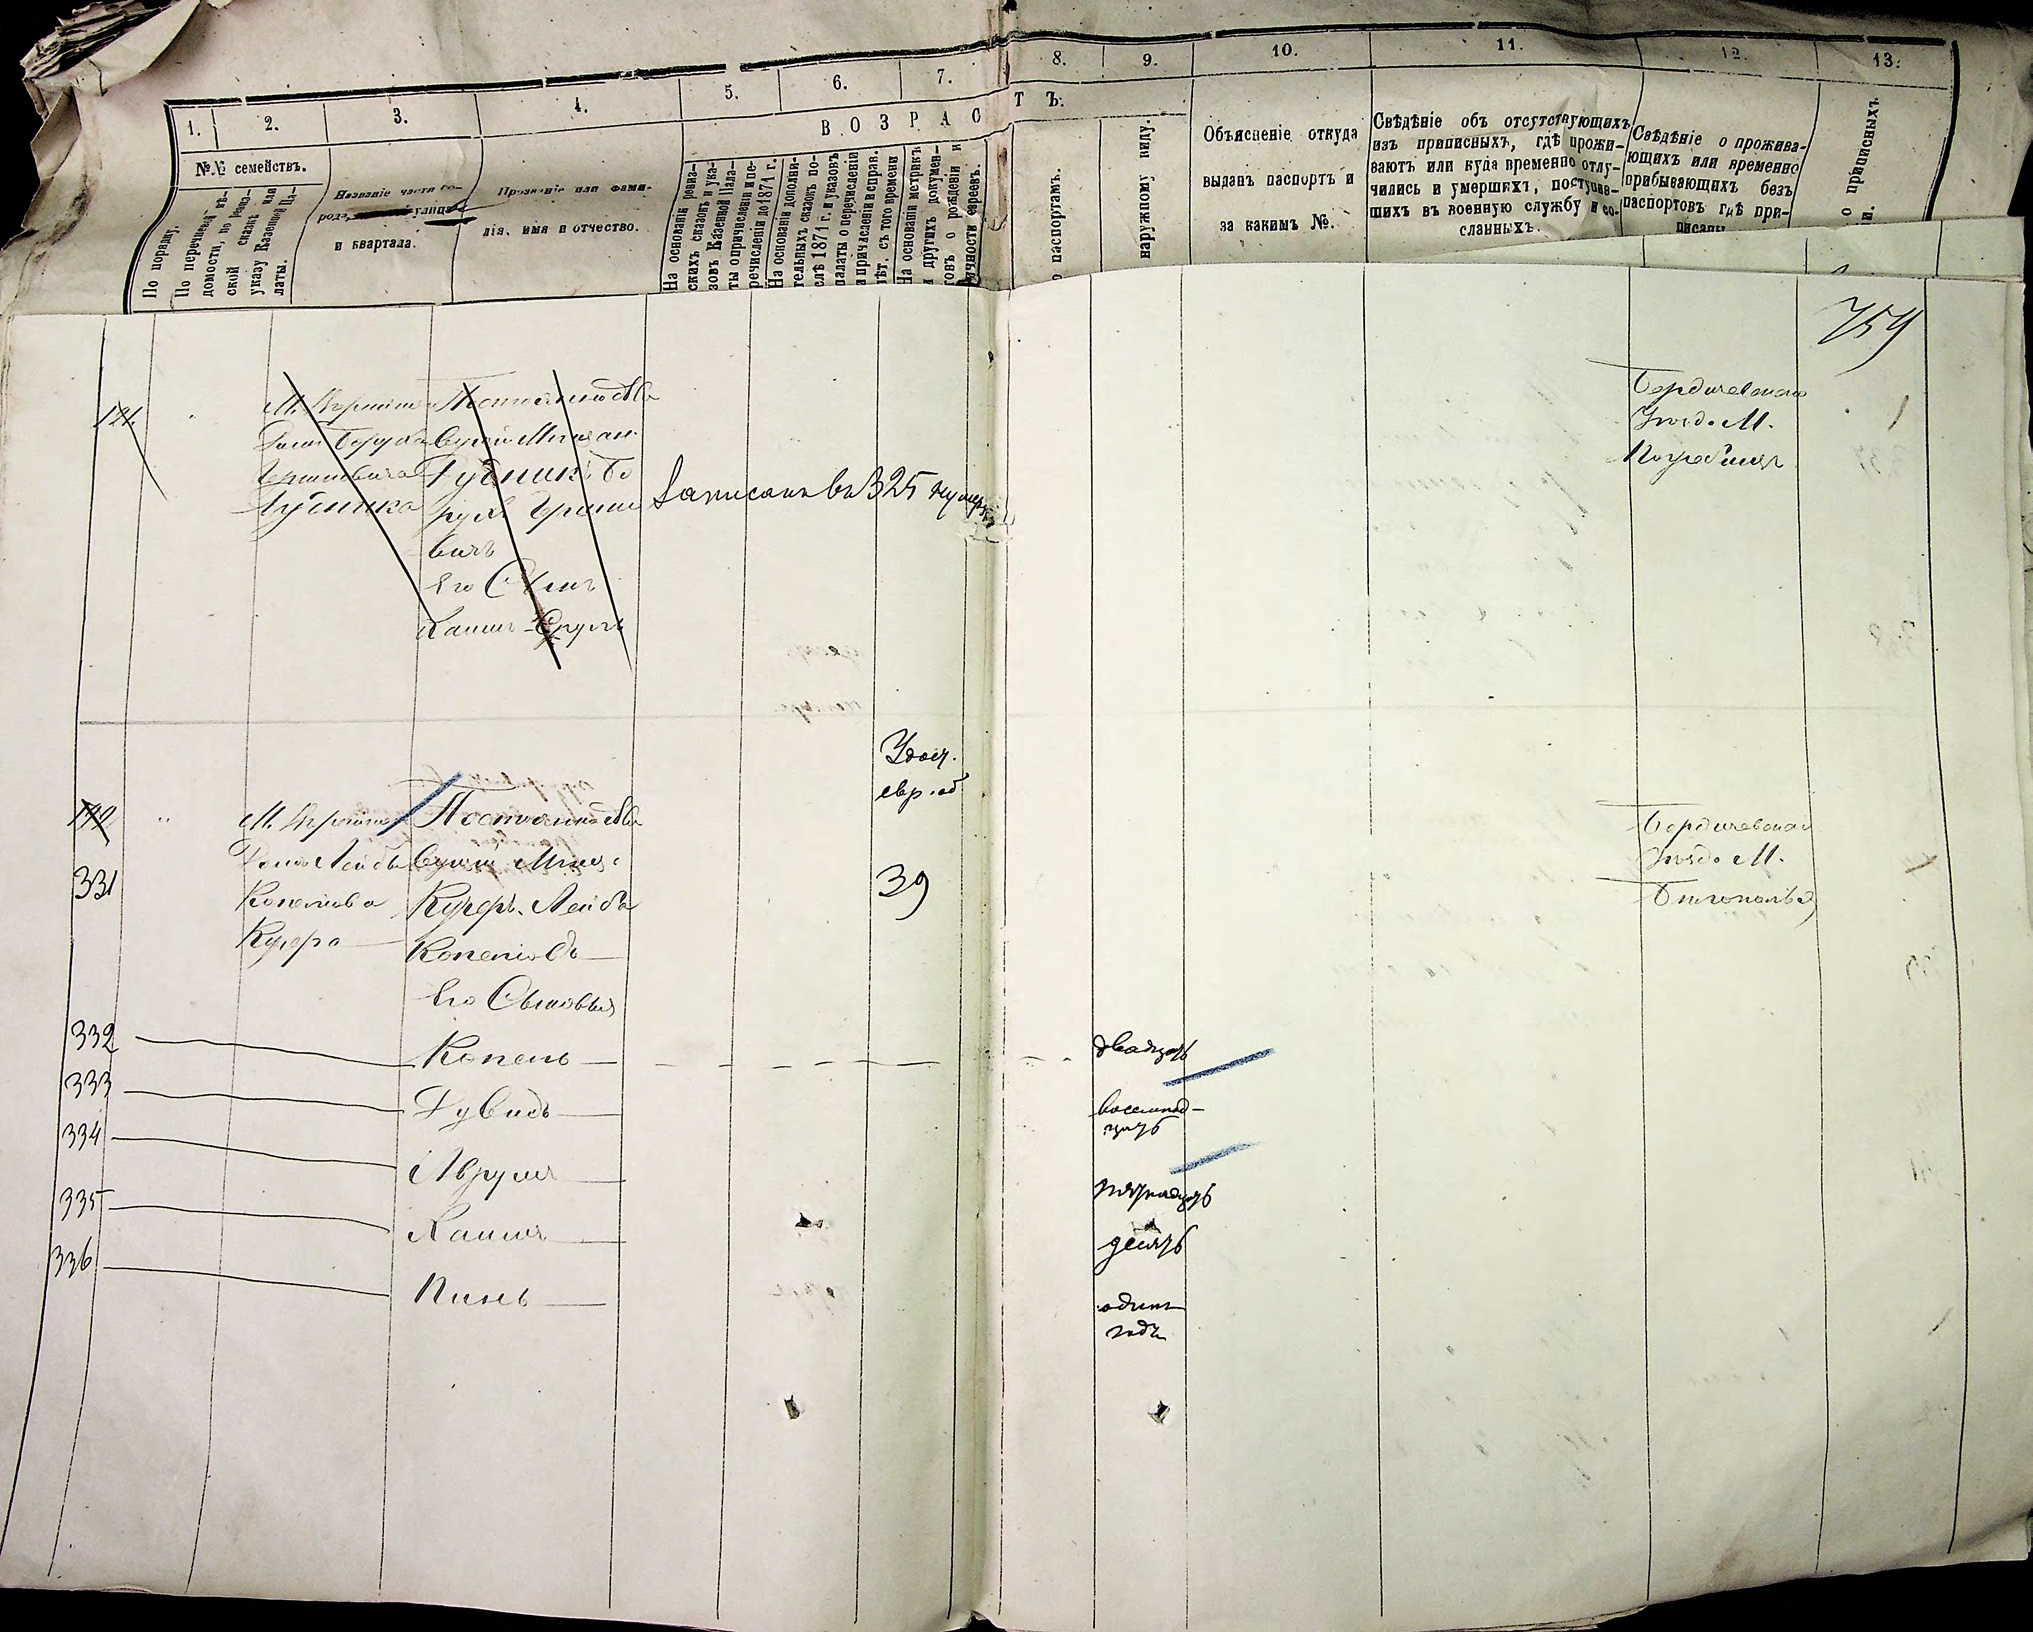 1.
2.
3.
4.
5.
6.
7.
8.
9.
10.
11.
12.
13.
№№ семействъ.
В О З Р А С Т Ъ.
По порядку.
По перечневой вѣ-
домости, по ревиз-
ской сказкѣ или
указу Казенной Па-
латы.
Названіе части го-
рода, улицы
и квартала.
Прозваніе или фами-
лія, имя и отчество.
На основаніи ревиз-
скихъ сказокъ и ука-
зовъ Казенной Пала-
ты о причисленіи и пе-
речисленіи до 1871 г.
На основаніи дополни-
тельныхъ сказокъ по-
слѣ 1871 г. и указовъ
палаты о перечисленіи
и причисленіи и справ.
лѣт. съ того времени
На основаніи метрикъ
и другихъ докумен-
товъ о рожденіи и
личности евреевъ.
о паспортамъ.
наружному виду.
Объясненіе откуда
выданъ паспортъ и
за какимъ №.
Свѣдѣніе объ отсутствующихъ
изъ приписныхъ, гдѣ прожи-
ваютъ или куда временно отлу-
чились и умершихъ, поступив-
шихъ въ военную службу и со-
сланныхъ.
Свѣдѣніе о прожива-
ющихъ или временно
прибывающихъ безъ
паспортовъ гдѣ при-
писаны
о приписныхъ
759
121.
Рудникъ Бо
рухъ Гершко
вичъ
Его Сынъ
Хаимъ-Сруль
Записанъ въ 325 нумерѣ
Бердичевскаго
Уѣзд. М.
Погребищъ
Удост.
евр. об
122
331
Дом Лейбы
Копелева
Кучера
Кучеръ Лейба
Копелевъ
39
Бердичевскаго
Уѣзд. М.
Его Сыновья
332
Копель
двадцать
333
Дувидъ
восемнад-
цать
334
Аврумъ
пятнадцать
335
Хаимъ
десять
336
Пинь
одинъ
годъ